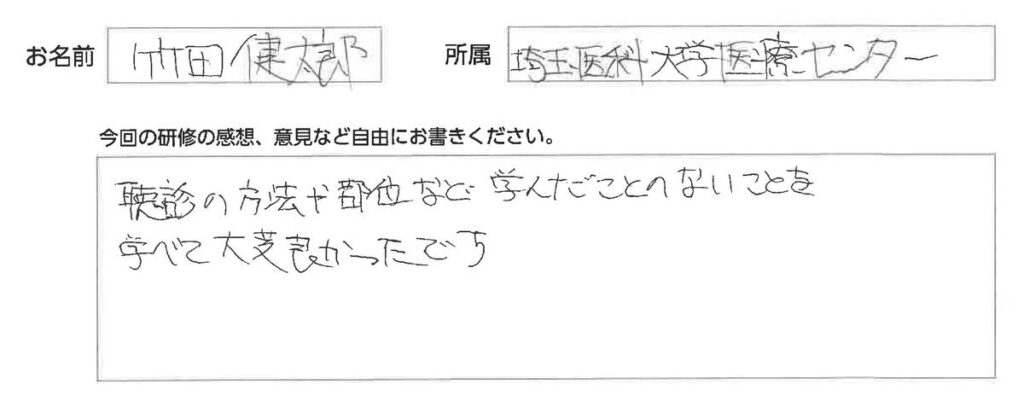 お名前 竹田健太郎 所属 埼玉医科大学医療センター
今回の研修の感想、意見など自由にお書きください。
聴診の方法や部位など学んだことのないことを
学べて大変良かったです